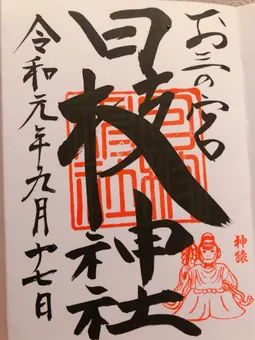 お三の宮
日枝神社
令和元年九月十七日
神猿